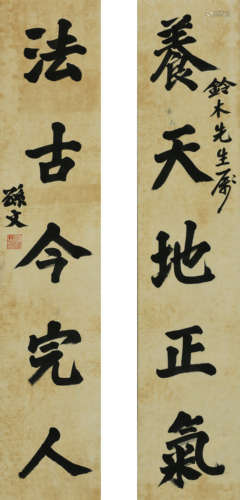 養天地正氣
鈴木先生屬
法古今完人
孫文